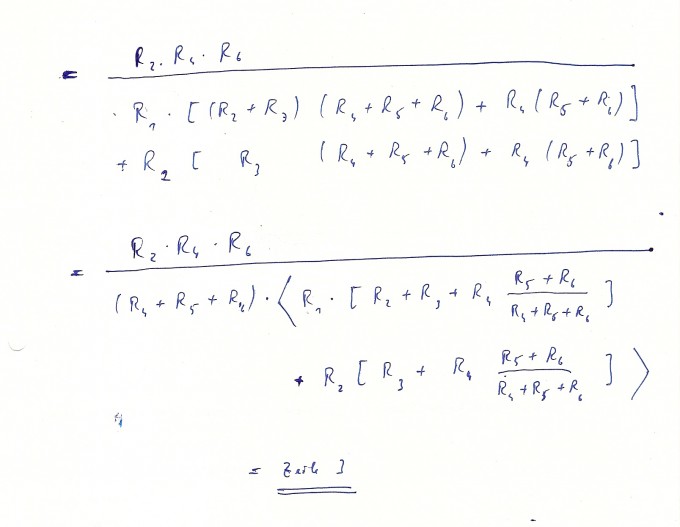 = R₂ · R₄ · R₆
R₁ · [ (R₂ + R₃) (R₄ + R₅ + R₆) + R₄ (R₅ + R₆) ]
+ R₂ [ R₃ (R₄ + R₅ + R₆) + R₄ (R₅ + R₆) ]
= R₂ · R₄ · R₆
(R₄ + R₅ + R₆) · ⟨ R₁ · [ R₂ + R₃ + R₄ (R₅ + R₆)/(R₄ + R₅ + R₆) ]
+ R₂ [ R₃ + R₄ (R₅ + R₆)/(R₄ + R₅ + R₆) ] ⟩
= Zeile 3